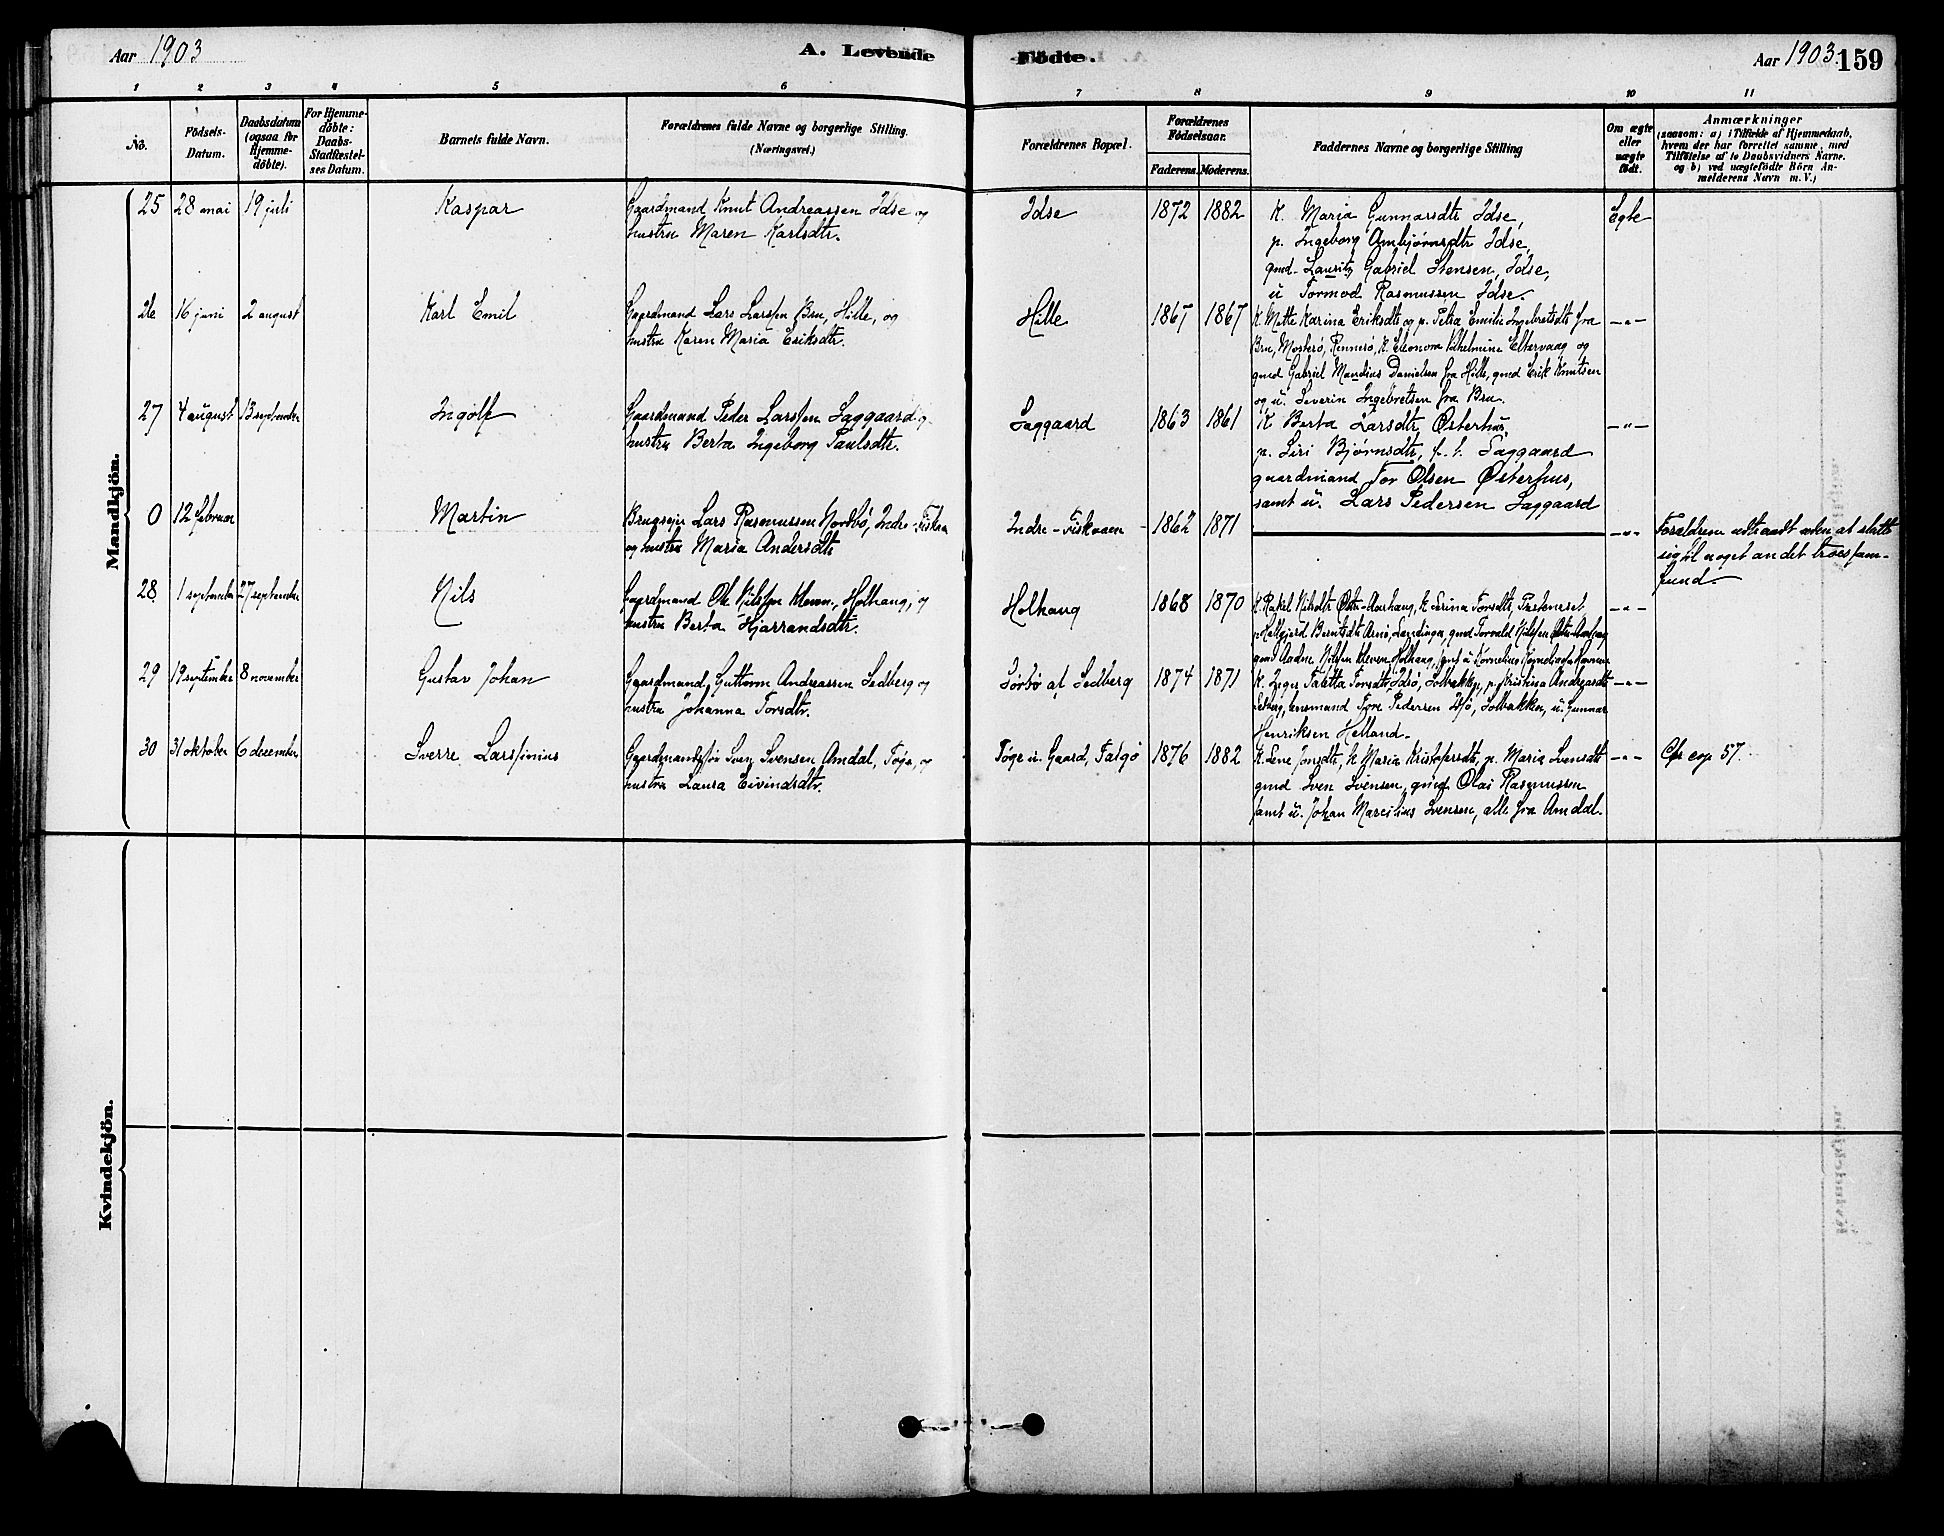 Aar 1903
A. Levende
Födte.
Aar 1903. 159
1 2 3 4 5 6 7 8 9 10 11
No.
Födsels-
Datum.
Daabsdatum
(ogsaa for
Hjemme-
döbte).
For Hjemme-
döbte:
Daabs-
Stadfæstel-
ses Datum.
Barnets fulde Navn.
Forældrenes fulde Navne og borgerlige Stilling.
(Næringsvei.)
Forældrenes Bopæl.
Forældrenes
Födselsaar.
Faderens. Moderens.
Faddernes Navne og borgerlige Stilling
Om ægte
eller
uægte
födt.
Anmærkninger
(saasom: a) i Tilfælde af Hjemmedaab,
hvem der har forrettet samme, med
Tilföielse af to Daabsvidners Navne.
og b) ved uægtefödte Börn An-
melderens Navn m. V.)
Mandkjön.
25 28 mai 19 juli Kaspar Gaardmand Knut Andreassen Idse og
hustru Maren Karlsdtr.
Idse 1872 1882 K. Maria Gunnarsdtr Idse,
p. Ingeborg Ambjørnsdtr Idse,
gmd. Lauritz Gabriel Stensen, Idse,
u Tormod Rasmussen Idse.
Egte
26 16 juni 2 august Karl Emil Gaardmand Lars Larssen Bru, Hille, og
hustru Karen Maria Eriksdtr.
Hille 1867 1867 K. Mette Karina Eriksdtr og p. Petra Emilie Ingebretsdtr fra
Bru, Mosterø, Rennesø, K. Eleonora Vilhelmine Eltervaag og
gmd Gabriel Mandius Danielsen fra Hille, gmd Erik Knutsen
og u. Severin Ingebretsen fra Bru.
-"-
27 4 august 13 september Ingolf Gaardmand Peder Larssen Saggaard og
hustru Berta Ingeborg Paulsdtr.
Saggaard 1863 1861 K Berta Larsdtr Østerhus,
p. Siri Bjørnsdtr, f. t. Saggaard
gaardmand Tor Olsen Østerhus,
samt u. Lars Pedersen Saggaard
-"-
0 12 februar Martin Brugseier Lars Rasmussen Nordbø, Indre-Fiskaa
og hustru Maria Andersdtr
Indre-Fiskaaen 1862 1871
-"-
Forældrene udtraadt uden at slutte
sig til noget andet troessam-
fund
28 1 september 27 september Nils Gaardmand Ole Nilssen Kleven, Holhaug, og
hustru Berta Hjarrandsdtr.
Holhaug 1868 1870 K. Rakel Nilsdtr Østre-Aarhaug, K Serina Torsdtr,
p Hallgjerd Berntsdtr Arnø, gmd Torvald Nilssen Østre-Aarhaug
gmd Aadne Nilssen Kleven Holhaug, samt u Kornelius
-"-
29 19 september 8 november Gustav Johan Gaardmand Guttorm Andreassen Sedberg og
hustru Johanna Torsdtr.
Sørbø af Sedberg 1874 1871 K. Inger Talitta Torsdtr, Idsø, Solbakken, p. Kristina Andreasdtr
Sedberg, lensmand Tore Pedersen Idsø, Solbakken, u. Gunnar
Henriksen Helland.
-"-
30 31 oktober 6 december Sverre Larssinius Gaardmandssøn Sven Svensen Amdal, Tøge, og
hustru Laura Eivindsdtr.
Tøge u. Gaard, Talgø 1876 1882 K. Lene Jonsdtr, k Maria Kristofersdtr, p. Maria Svensdtr
gmd Sven Svensen, gmd Olai Rasmussen
samt u. Johan Marcelius Svensen, alle fra Amdal.
-"-
Cfr cop 57.
Kvindekjön.